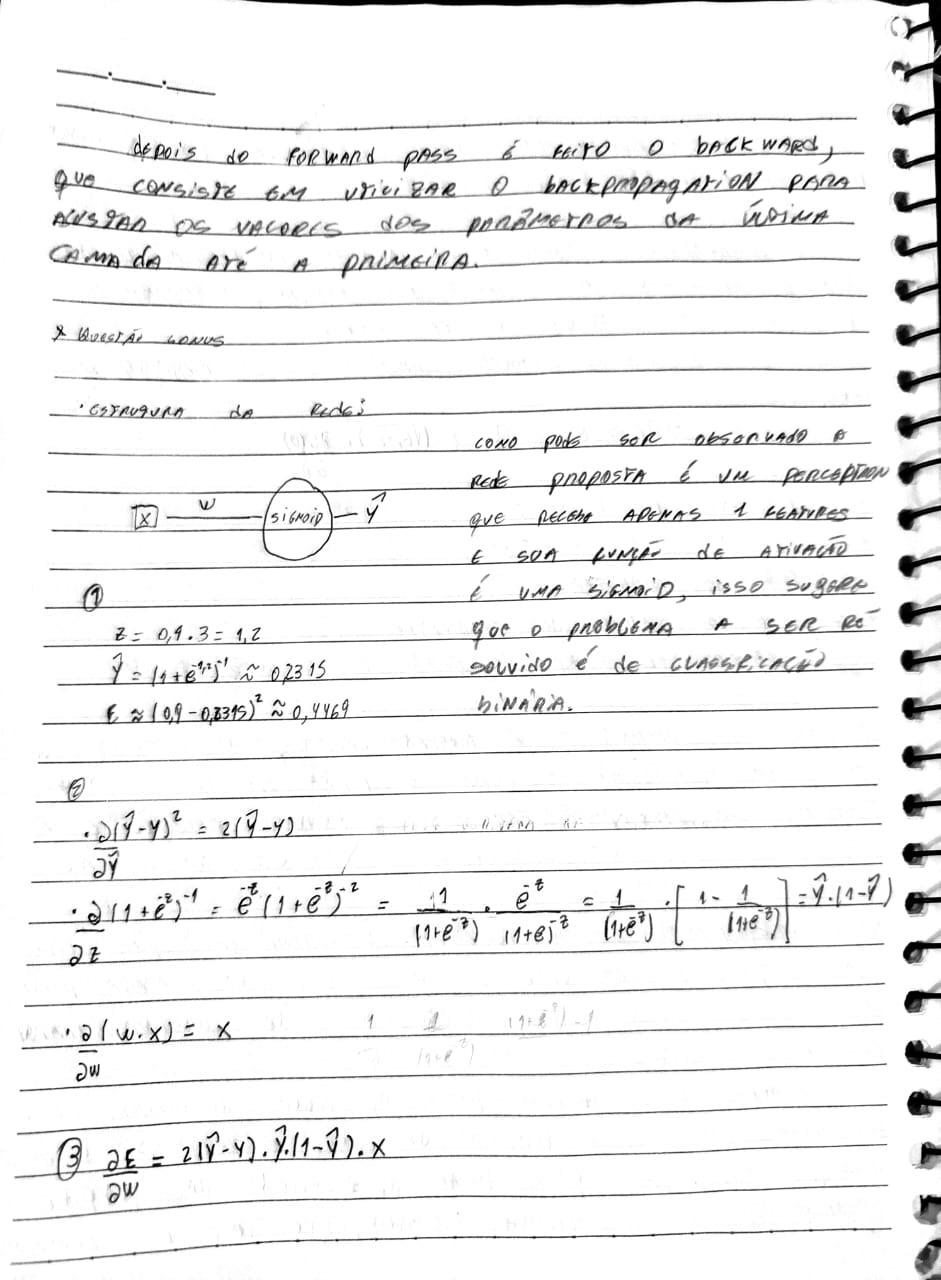 DEPOIS DO FORWARD PASS É FEITO O BACKWARD,
QUE CONSISTE EM UTILIZAR O BACKPROPAGATION PARA
AJUSTAR OS VALORES DOS PARÂMETROS DA ÚLTIMA
CAMADA ATÉ A PRIMEIRA.
* QUESTÃO BONUS
• ESTRUTURA DA REDE:
X W SIGMOID Ŷ
COMO PODE SER OBSERVADO A
REDE PROPOSTA É UM PERCEPTRON
QUE RECEBE APENAS 1 FEATURES
E SUA FUNÇÃO DE ATIVAÇÃO
É UMA SIGMOID, ISSO SUGERE
QUE O PROBLEMA A SER RE
SOLVIDO É DE CLASSIFICAÇÃO
BINÁRIA.
①
Z = 0,4 . 3 = 1,2
Ŷ = (1+e^-1,2)^-1 ≈ 0,2315
E ≈ (0,9 - 0,2315)² ≈ 0,4469
②
• ∂(Ŷ-Y)² / ∂Ŷ = 2(Ŷ-Y)
• ∂(1+e^-z)^-1 / ∂z = e^-z (1+e^-z)^-2 = 1/(1+e^-z) . e^-z/(1+e)^-z = 1/(1+e^-z) . [1 - 1/(1+e^-z)] = Ŷ.(1-Ŷ)
• ∂(W.X) / ∂W = X
③ ∂E/∂W = 2(Ŷ-Y).Ŷ.(1-Ŷ).X